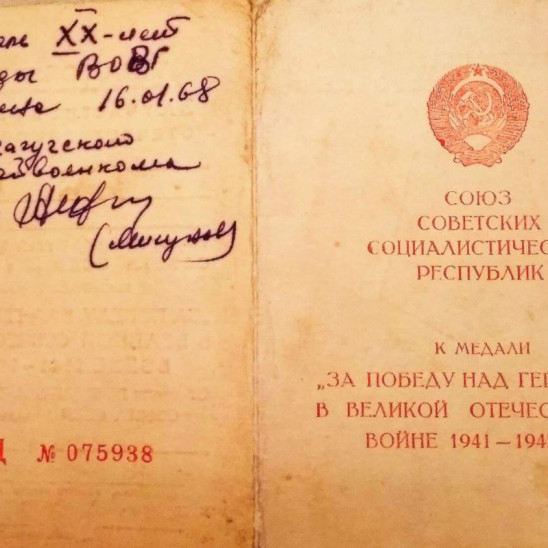 ль XX-лет
ды ВОВ
на 16.01.68
агугского
йвоенкома
Д № 075938
СОЮЗ
СОВЕТСКИХ
СОЦИАЛИСТИЧЕС
РЕСПУБЛИК
К МЕДАЛИ
„ЗА ПОБЕДУ НАД ГЕР
В ВЕЛИКОЙ ОТЕЧЕС
ВОЙНЕ 1941—194